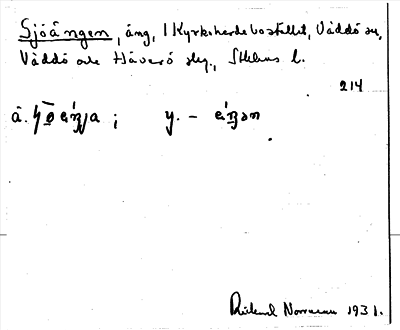 Sjöängen, äng, 1 Kyrkoherdebostället, Väddö sn,
Väddö och Häverö skg., Sthlms l.
214
ä.
y. -
Rickard Norrman 1931.